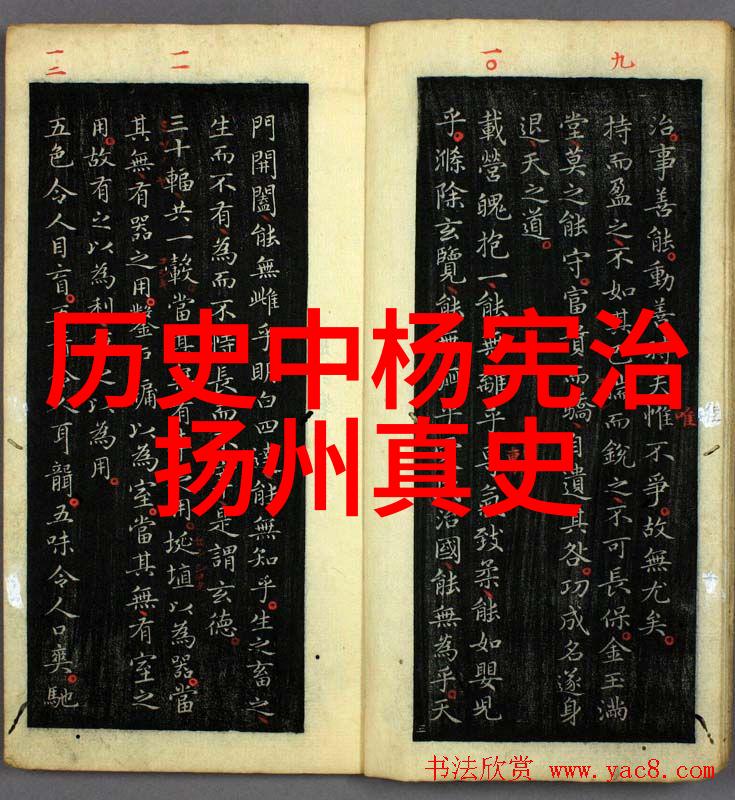 九
一〇
一一
一二
治事善能動善夫惟不爭故無尤矣
持而盈之不如其揣而銳之不可長保金玉滿
堂莫之能守富貴而驕自遺其咎功成名遂身
退天之道
載營魄抱一能無離乎致柔能如嬰兒
乎滌除玄覽能無乎治國能無為乎天
門開闔能無雌乎明白四能無知乎生之畜之
生而不有為而不恃長而是謂玄德
三十輻共一轂當其有用埏埴以為器當
其無有器之用鑿戶牖以為室當其無有室之
用故有之以為利之以為用
五色令人目盲五令人耳聾五味令人口爽馳
历史中杨宪治
扬州真史
唯
书法欣赏 www.yac8.com